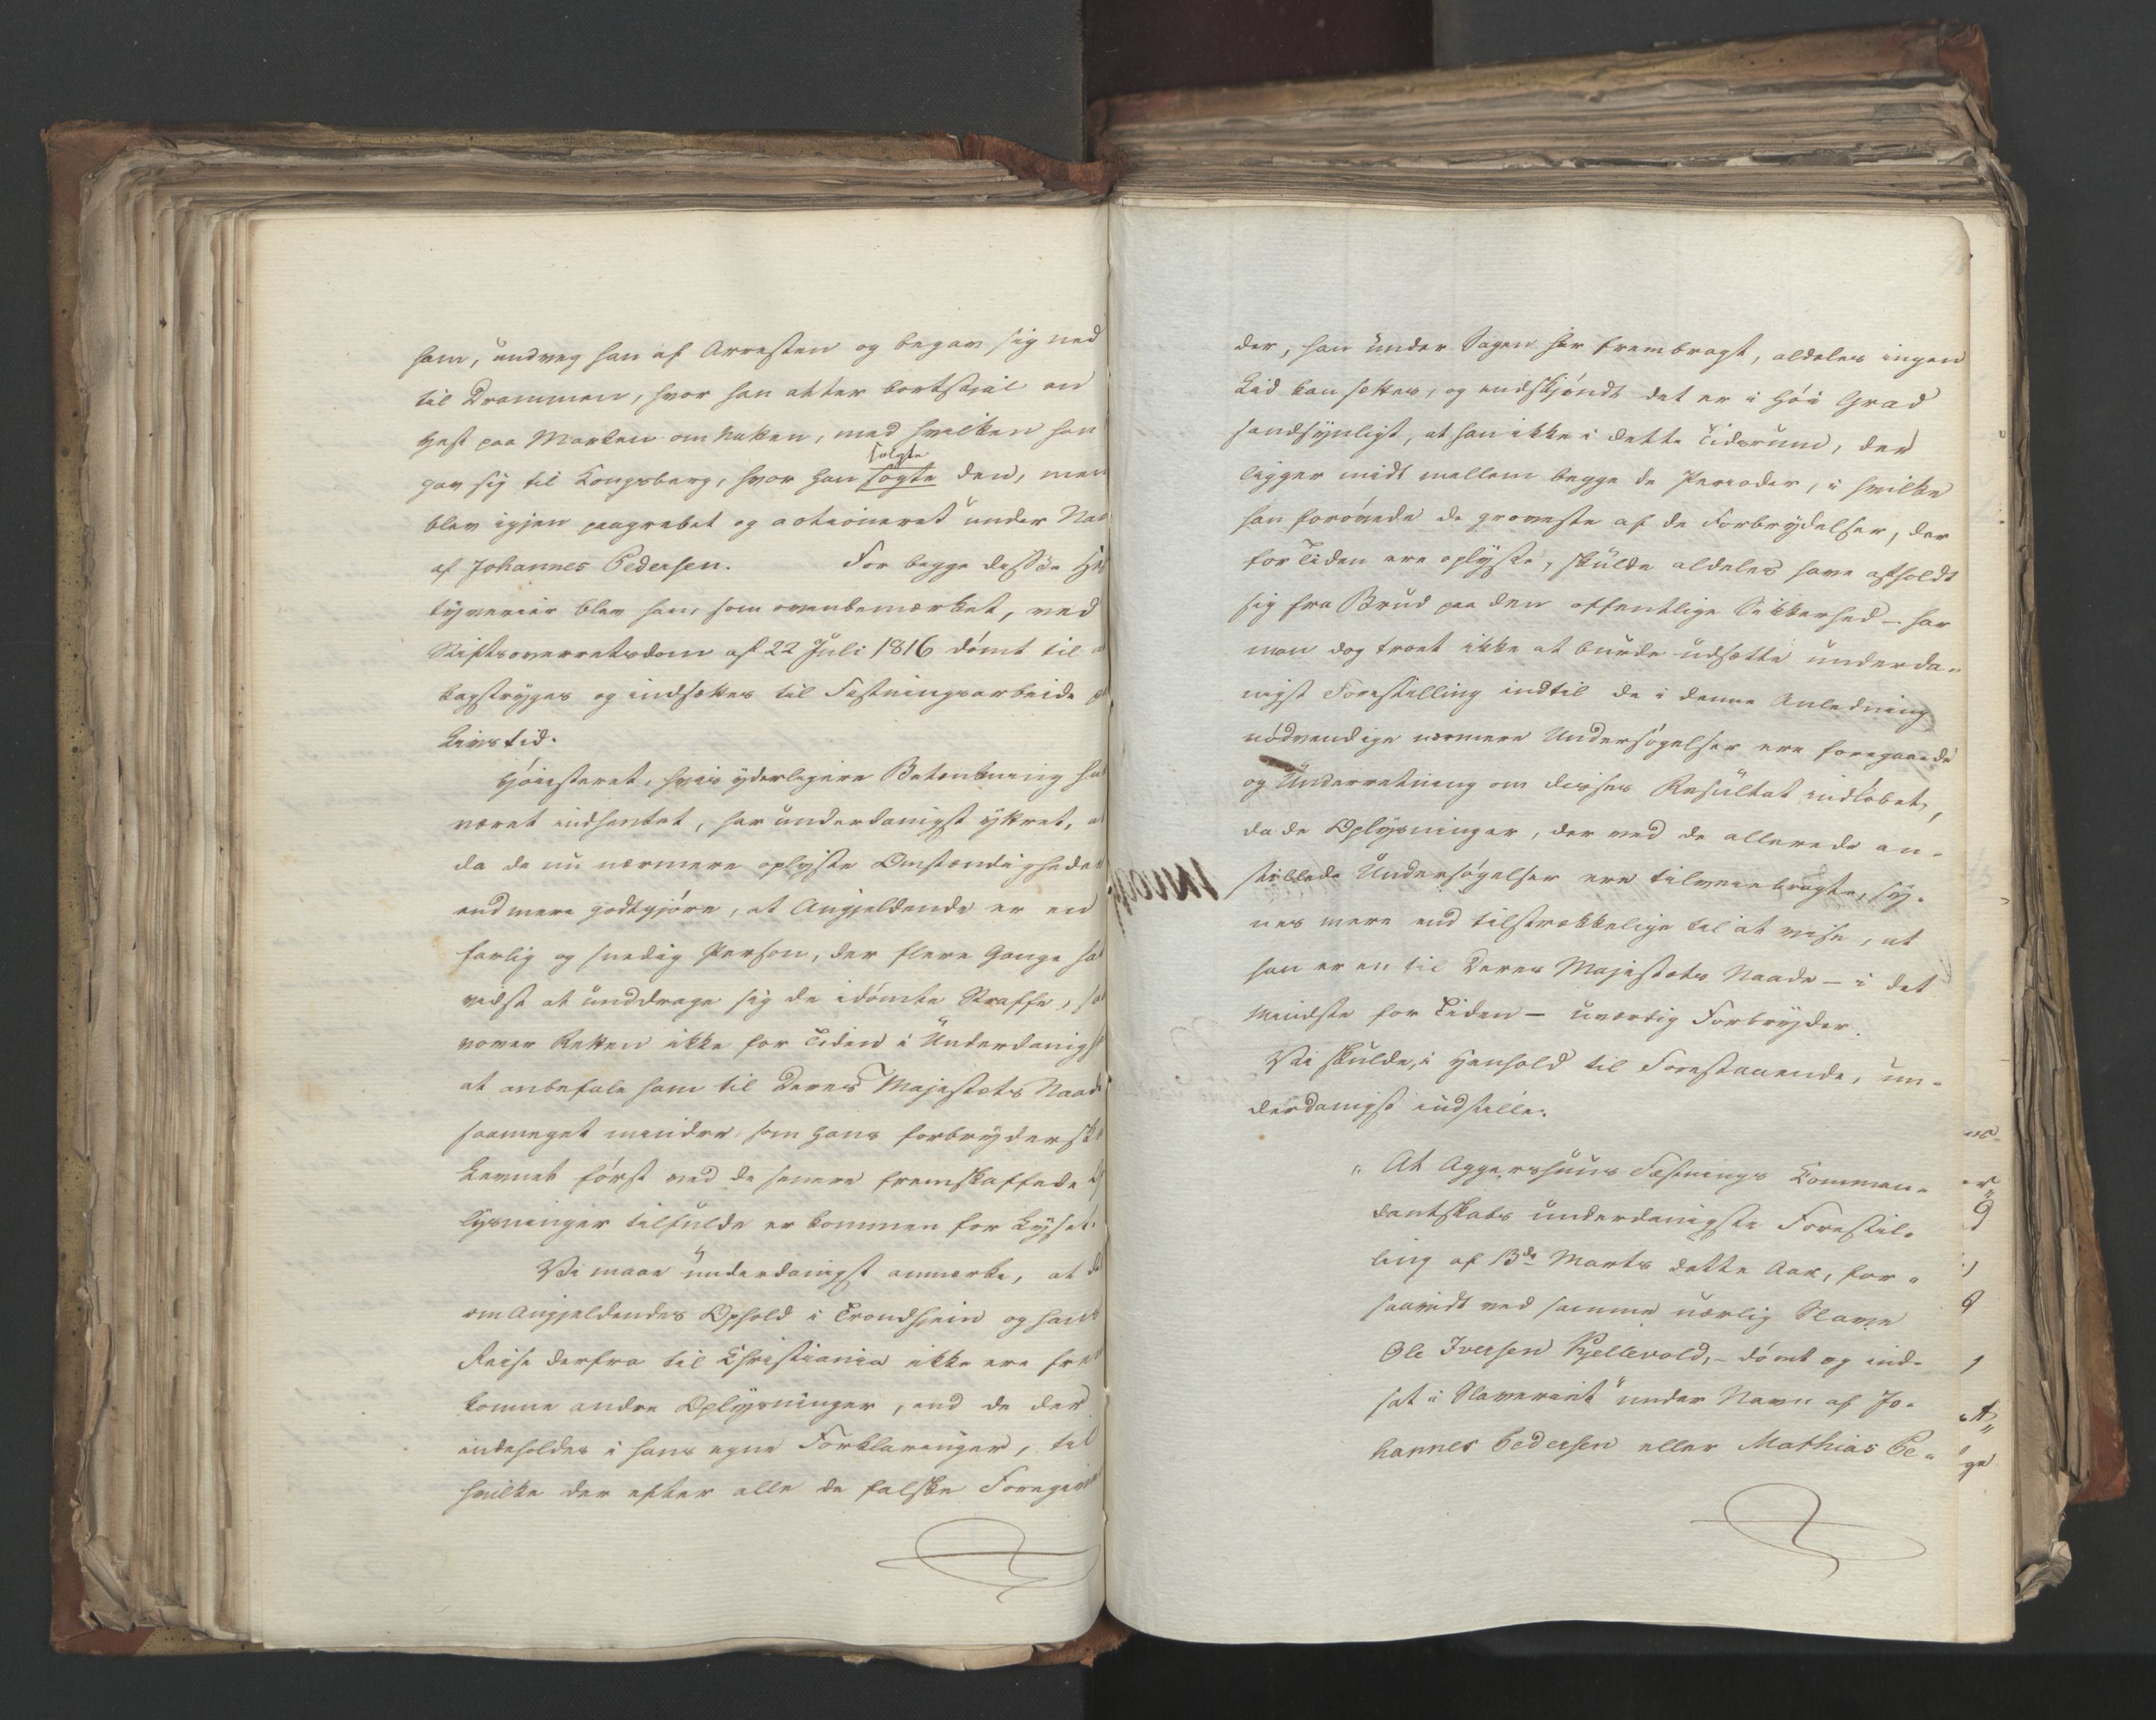 ham, undveg han af Arresten og begav sig ned
til Drammen, hvor han atter bortstjal en
Hest paa Marken om Natten, med hvilken han
gav sig til Kongsberg, hvor han søgte solgte den, men
blev igjen paagrebet og actioneret under Nav
af Johannes Pedersen. For begge disse He
tyverier blev han, som ovenbemærket, ved
Stiftsoverretsdom af 22 Juli 1816 dømt til a
kagstryges og indsættes til Fæstningsarbeide p
Livstid.
Høiesteret, hvis yderligere Betænkning ha
været indhentet, har underdanigst yttret, a
da de nu nærmere oplyste Omstændigheder
end mere godtgjøre, at Angjeldende er en
farlig og snedig Person, der flere Gange ha
vidst at unddrage sig de idømte Straffe, sa
vover Retten ikke for Tiden i Underdanigh
at anbefale ham til Deres Majestæts Naade
saameget mindre, som hans forbryderske
Levnet først ved de senere fremskaffede O
lysninger tilfulde er kommen for Lyset.
Vi maae underdanigst anmærke, at de
om Angjeldendes Ophold i Trondhjem og hans
Reise derfra til Christiania ikke ere frem
komne andre Oplysninger, end de der
indeholdes i hans egne Forklaringer, til
hvilke der efter alle de falske Foregiven
der, han under Sagen har frembragt, aldeles ingen
Lid kan settes, og endskjøndt det er i høi Grad
sandsynligt, at han ikke i dette Tidsrum, der
ligger midt mellem begge de Perioder, i hvilke
han forøvede de groveste af de Forbrydelser, der
for Tiden ere oplyste, skulde aldeles have afholdt
sig fra Brud paa den offentlige Sikkerhed – har
man dog troet ikke at burde udsætte underda-
nigst Forestilling indtil de i denne Anledning
nødvendige nærmere Undersøgelser ere foregaaede
og Underretning om disses Resultat indløbet,
da de Oplysninger, der ved de allerede an-
stillede Undersøgelser ere tilveiebragte, sy-
nes mere end tilstrækkelige til at vise, at
han er en til Deres Majestæts Naade – i det
mindste for Tiden – uværdig Forbryder.
Vi skulde, i Henhold til Forestaaende, un-
derdanigst indstille:
„At Aggershuus Fæstnings Komman-
dantskabs underdanigste Forestil-
ling af 13de Marts dette Aar, for-
saavidt ved samme nærlig Slave
Ole Iversen Kjellevold, – dømt og ind-
sat i Slaveriet under Navn af Jo-
hannes Pedersen eller Mathias Pe-